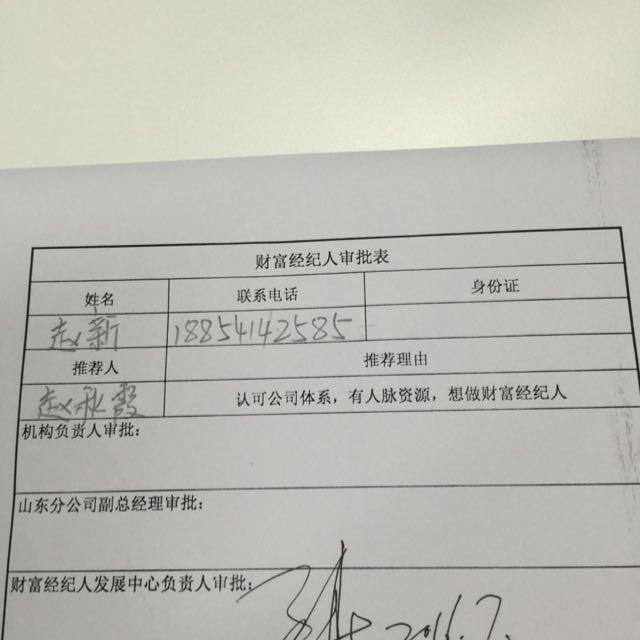 财富经纪人审批表
姓名 联系电话 身份证
赵新 18854142585
推荐人 推荐理由
赵秋霞 认可公司体系，有人脉资源，想做财富经纪人
机构负责人审批：
山东分公司副总经理审批：
财富经纪人发展中心负责人审批： 2016.7.